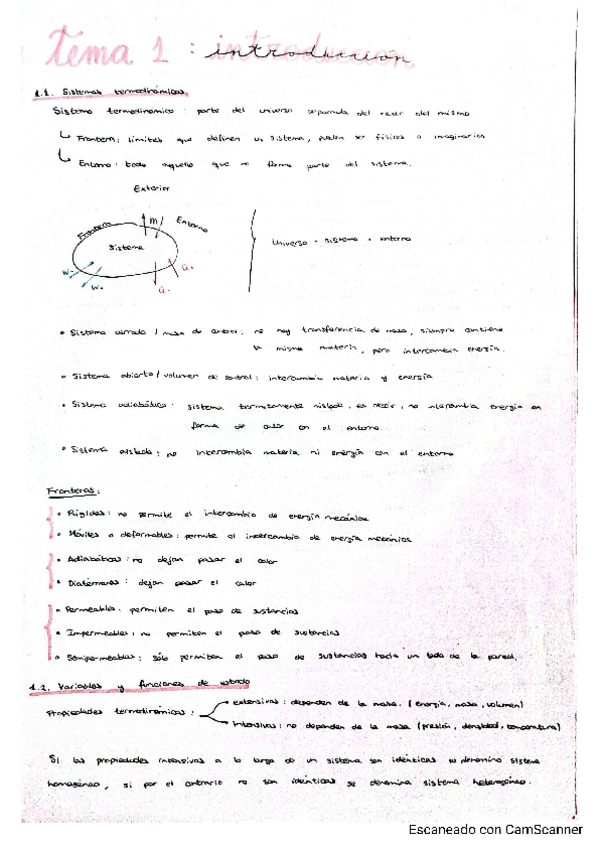 Tema 1 : introduccion
1.1. Sistemas termodinámicos
Sistema termodinámico : parte del universo separada del resto del mismo
Frontera: límites que definen un sistema, pueden ser físicos o imaginarios
Entorno: todo aquello que no forma parte del sistema.
Exterior
Frontera
m
Entorno
Sistema
Universo = sistema + entorno
W-
W+
Q-
Q+
• Sistema cerrado / masa de control: no hay transferencia de masa, siempre contiene
la misma materia, pero intercambia energía.
• Sistema abierto / volumen de control: intercambia materia y energía
• Sistema adiabático: sistema termicamente aislado, es decir, no intercambia energía en
forma de calor con el entorno.
• Sistema aislado: no intercambia materia ni energía con el entorno
Fronteras:
• Rígidas: no permite el intercambio de energía mecánica
• Móviles o deformables: permite el intercambio de energía mecánica
• Adiabáticas: no dejan pasar el calor
• Diatérmanas: dejan pasar el calor
• Permeables: permiten el paso de sustancias
• Impermeables: no permiten el paso de sustancias
• Semipermeables: sólo permiten el paso de sustancias hacia un lado de la pared.
1.2. Variables y funciones de estado
Propiedades termodinámicas :
extensivas: dependen de la masa. (energía, masa, volumen)
Intensivas: no dependen de la masa (presión, densidad, temperatura)
Si las propiedades intensivas a lo largo de un sistema son idénticas se denomina sistema
homogéneo, si por el contrario no son idénticas se denomina sistema heterogéneo.
Escaneado con CamScanner